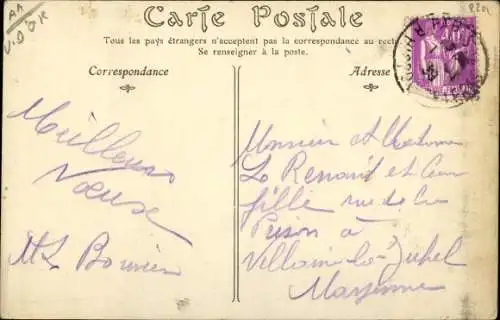 AA
V.D OR
Carte Postale
Tous les pays étrangers n'acceptent pas la correspondance au recto
Se renseigner à la poste.
Correspondance
Adresse
Meilleurs
Vœux
Monsieur et Madame
Le Renard et leur
fille rue de la
Prison à
Villaine-la-Juhel
Mayenne